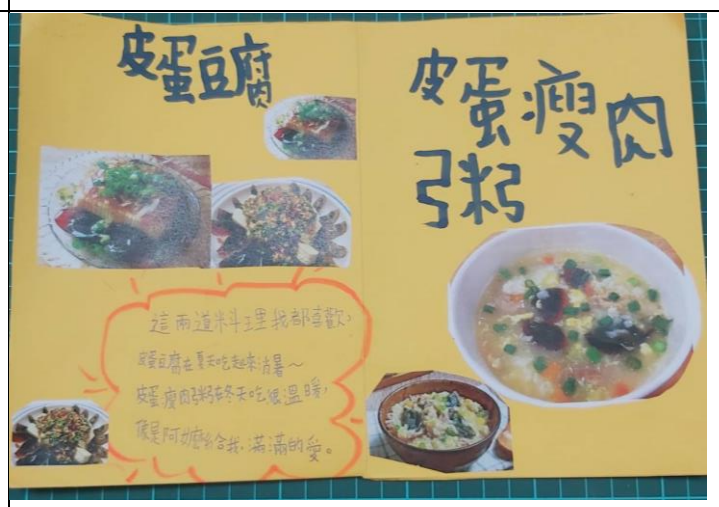 皮蛋豆腐
皮蛋瘦肉
粥
這兩道料理我都喜歡，
皮蛋豆腐在夏天吃起來消暑～
皮蛋瘦肉粥在冬天吃很溫暖，
像是阿嬤給我，滿滿的愛。